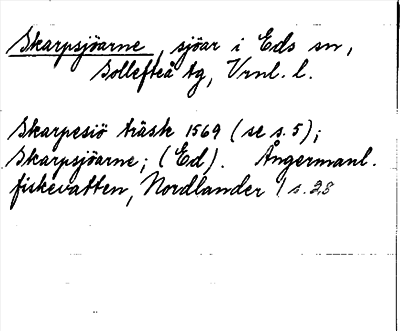 Skarpsjöarne, sjöar i Eds sn,
Sollefteå tg, Vrnl. l.
Skarpesiö träsk 1569 (se s. 5);
Skarpsjöarne; (Ed). Ångermanl.
fiskevatten, Nordlander s. 28